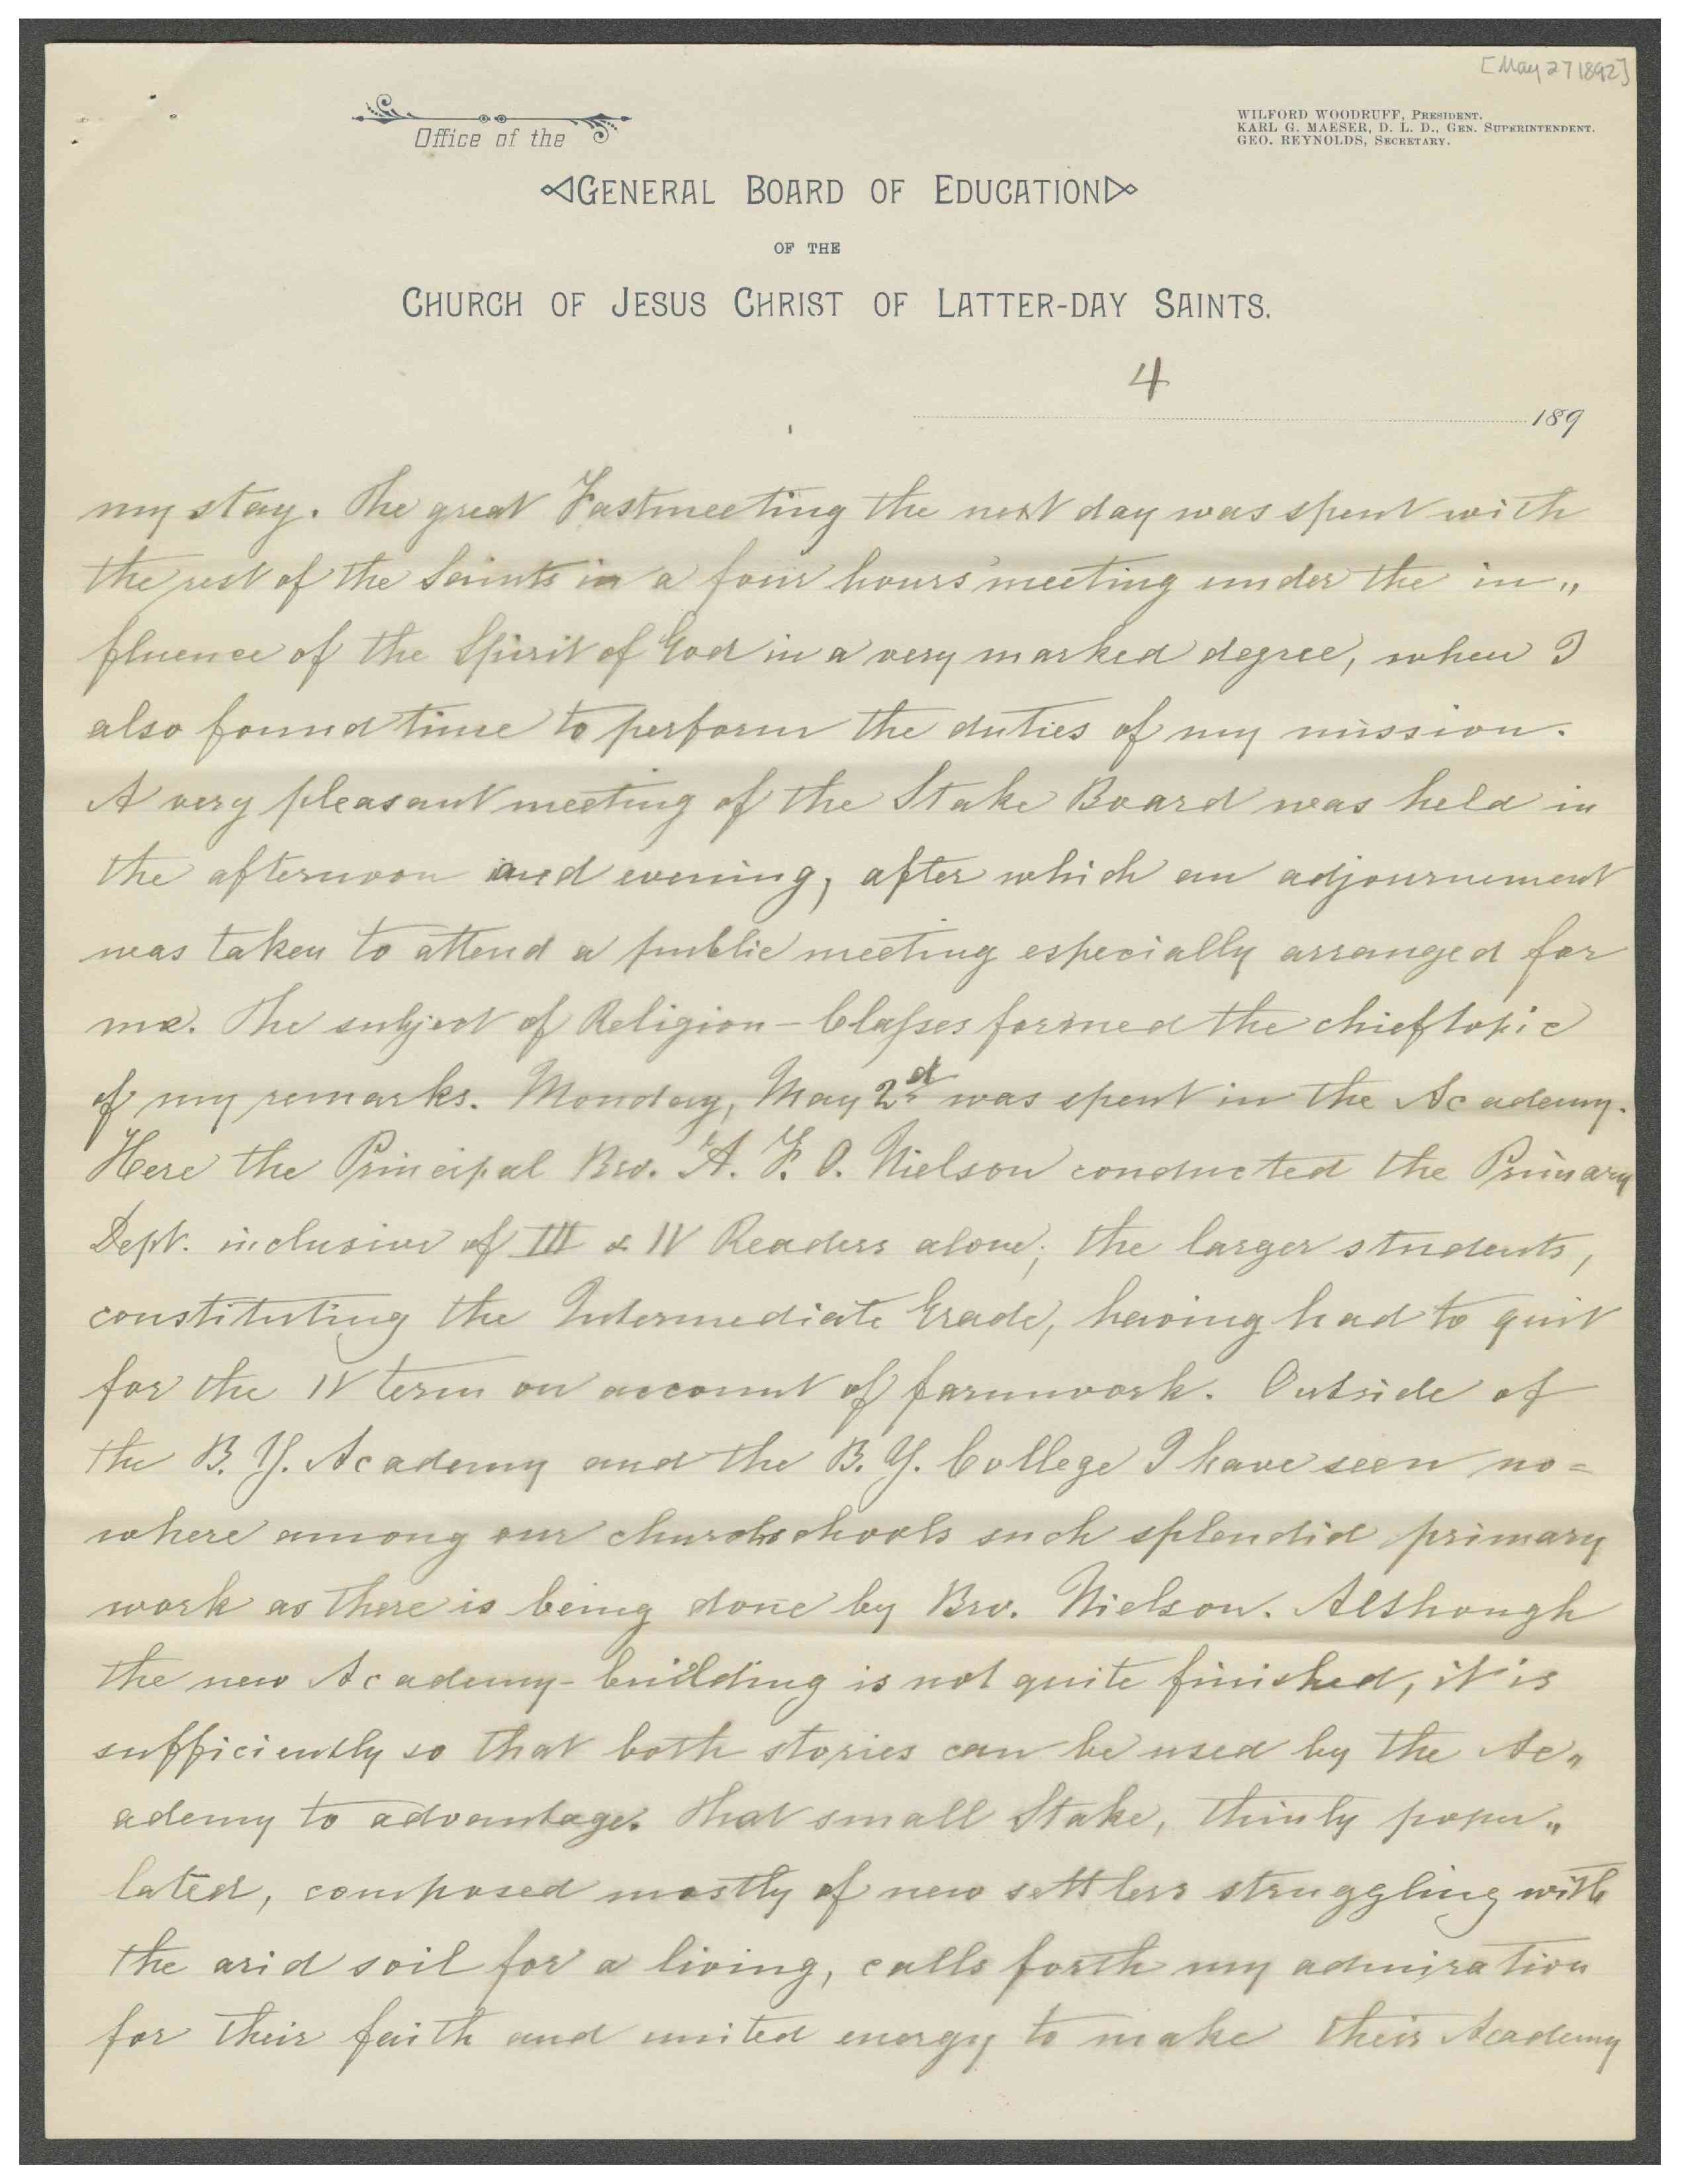 [May 27 1892]
WILFORD WOODRUFF, PRESIDENT.
KARL G. MAESER, D. L. D., GEN. SUPERINTENDENT.
GEO. REYNOLDS, SECRETARY.
Office of the
GENERAL BOARD OF EDUCATION
OF THE
CHURCH OF JESUS CHRIST OF LATTER-DAY SAINTS.
4
189
my stay. The great Fastmeeting the next day was spent with
the rest of the Saints in a four hours' meeting under the in„
fluence of the Spirit of God in a very marked degree, when I
also found time to perform the duties of my mission.
A very pleasant meeting of the Stake Board was held in
the afternoon and evening, after which an adjournement
was taken to attend a public meeting especially arranged for
me. The subject of Religion-Classes formed the chief topic
of my remarks. Monday, May 2d was spent in the Academy.
Here the Principal Bro. A. F. O. Nielson conducted the Primary
Dept. inclusive of III & IV Readers alone; the larger students,
constituting the Intermediate Grade, having had to quit
for the IV term on account of farmwork. Outside of
the B. Y. Academy and the B. Y. College I have seen no=
where among our churchschools such splendid primary
work as there is being done by Bro. Nielson. Although
the new Academy-building is not quite finished, it is
sufficiently so that both stories can be used by the Ac„
ademy to advantage. That small Stake, thinly popu„
lated, composed mostly of new settlers struggling with
the arid soil for a living, calls forth my admiration
for their faith and united energy to make their Academy